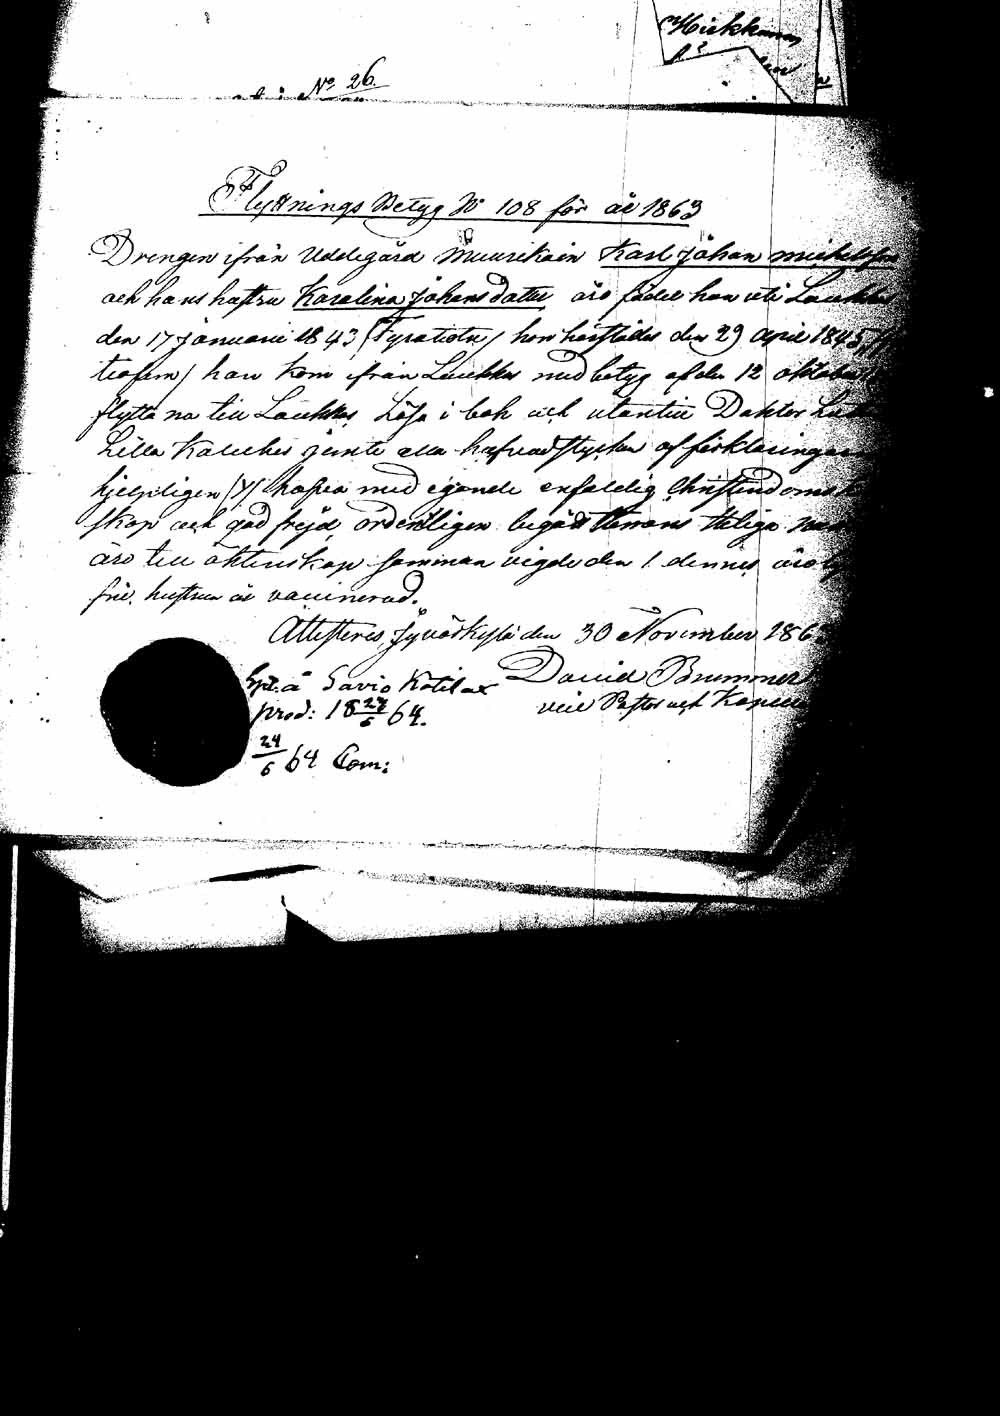 Hiekkanen
No 26.
Flyttnings Betyg No 108 för år 1863
Drengen ifrån Uddegård Muurikain Karl Johan Michelsson
och hans hustru Karolina Johansdotter äro födde han uti Laukkas
den 17 Januarii 1843 /Tyratiotu/ hon härstädes den 29 April 1845
han kom ifrån Laukkas med betyg af den 12 oktober
flytta nu till Laukkas, Läsa i bok och utantill Doktor
Lilla Kateches jemte alla hufvudstycken af förklaringen
hjelpligen hafva med egande enfaldig Christendoms
skap och god frejd ordentligen begått Herrans Heliga
äro till äktenskap samman vigde den 1 dennes äro
frie, hustrun är vaccinerad.
Attesteras, Jyväskylä den 30 November 186
David Brummer
vice Pastor och
à Savio Kotilax
prod: 18 27/6 64.
24/6 64 Com: